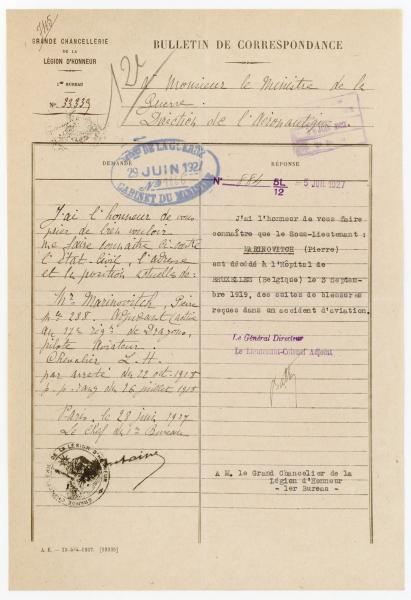 GRANDE CHANCELLERIE
DE LA
LÉGION D'HONNEUR
1er BUREAU
No. 33339
BULLETIN DE CORRESPONDANCE
Monsieur le Ministre de la
Guerre.
Direction de l'Aéronautique
DEMANDE
DE LA GUERRE
29 JUIN 1927
CABINET DU MINISTRE
J'ai l'honneur de vous
prier de bien vouloir
me faire connaître ci-contre
l'Etat-Civil, l'adresse
et la position actuelles de:
Mr. Marinovitch, Pierre
Adjudant
au 27e régt de Dragons,
pilote aviateur.
Chevalier L. H.
par arrêté du 22 oct. 1918
p. p. rang du 26 juillet 1918
Paris, le 28 juin 1927
Le Chef du 1er Bureau
RÉPONSE
No 884 5L/12 - 5 JUIL 1927
J'ai l'honneur de vous faire
connaître que le Sous-Lieutenant :
MARINOVITCH (Pierre)
est décédé à l'Hôpital de
BRUXELLES (Belgique) le 2 Septem-
bre 1919, des suites de blessures
reçues dans un accident d'aviation.
Le Général Directeur
Le Lieutenant-Colonel Adjoint
A M. le Grand Chancelier de la
Légion d'Honneur
- 1er Bureau -